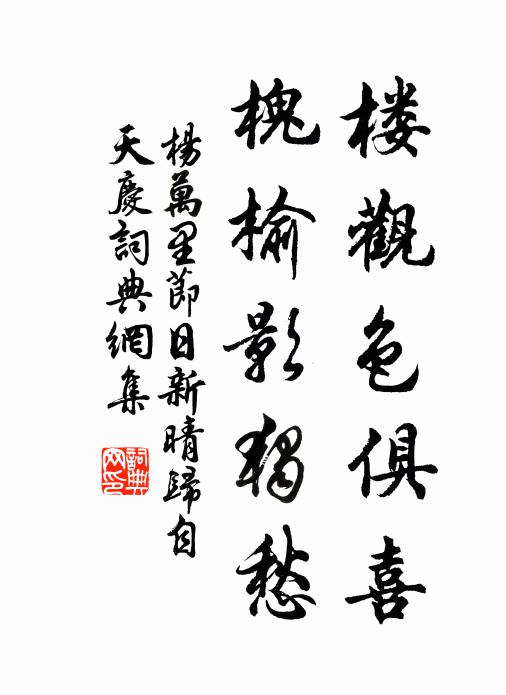 楼觀色俱喜
槐榆影獨愁
楊萬里節日新晴歸自
天慶詞典網集
詞典
网印